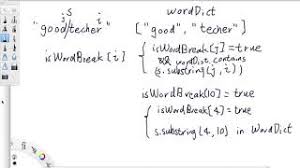 s
j i
wordDict
"good/techer"
["good", "techer"]
isWordBreak[i]
{ isWordBreak[j] = true
&& wordDict. contains
(s.substring(j, i)
isWordBreak[10] = true
{ isWordBreak[4] = true
s.substring(4, 10) in WordDict